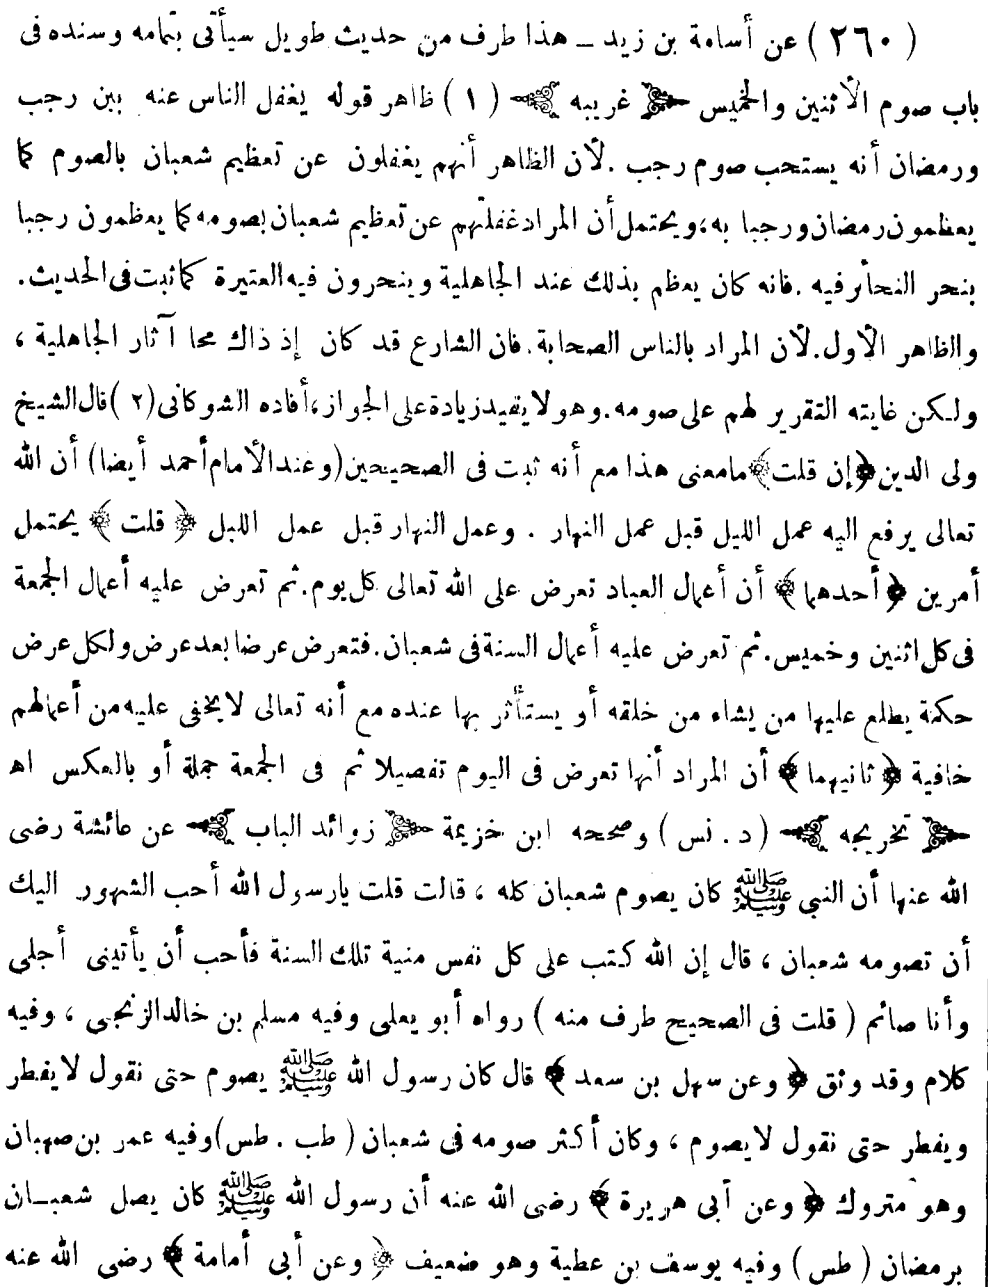 ( ٢٦٠ ) عن أسامة بن زيد ــ هذا طرف من حديث طويل سيأتى بتمامه وسنده فى
باب صوم الأثنين والخميس ﴿ غريبه ﴾ ( ١ ) ظاهر قوله يغفل الناس عنه بين رجب
ورمضان أنه يستحب صوم رجب . لأن الظاهر أنهم يغفلون عن تعظيم شعبان بالصوم كما
يعظمون رمضان ورجبا به، ويحتمل أن المراد غفلتهم عن تعظيم شعبان بصومه كما يعظمون رجبا
بنحر النحائر فيه . فانه كان يعظم بذلك عند الجاهلية وينحرون فيه العتيرة كما ثبت فى الحديث.
والظاهر الأول. لأن المراد بالناس الصحابة. فان الشارع قد كان إذ ذاك محا آثار الجاهلية ،
ولكن غايته التقرير لهم على صومه. وهو لا يفيد زيادة على الجواز، أفاده الشوكانى (٢ ) قال الشيخ
ولى الدين ﴿إن قلت﴾ ما معنى هذا مع أنه ثبت فى الصحيحين (وعند الأمام أحمد أيضا) أن الله
تعالى يرفع اليه عمل الليل قبل عمل النهار . وعمل النهار قبل عمل الليل ﴿ قلت ﴾ يحتمل
أمرين ﴿ أحدهما ﴾ أن أعمال العباد تعرض على الله تعالى كل يوم. ثم تعرض عليه أعمال الجمعة
فى كل اثنين وخميس. ثم تعرض عليه أعمال السنة فى شعبان. فتعرض عرضا بعد عرض ولكل عرض
حكمة يطلع عليها من يشاء من خلقه أو يستأثر بها عنده مع أنه تعالى لا يخفى عليه من أعمالهم
خافية ﴿ ثانيهما ﴾ أن المراد أنها تعرض فى اليوم تفصيلا ثم فى الجمعة جملة أو بالعكس اهـ
﴿ تخريجه ﴾ ( د . نس ) وصححه ابن خزيمة ﴿ زوائد الباب ﴾ عن عائشة رضى
الله عنها أن النبى ﷺ كان يصوم شعبان كله ، قالت قلت يارسول الله أحب الشهور اليك
أن تصومه شعبان ، قال إن الله كتب على كل نفس منية تلك السنة فأحب أن يأتينى أجلى
وأنا صائم ( قلت فى الصحيح طرف منه ) رواه أبو يعلى وفيه مسلم بن خالد الزنجى ، وفيه
كلام وقد وثق ﴿ وعن سهل بن سعد ﴾ قال كان رسول الله ﷺ يصوم حتى نقول لا يفطر
ويفطر حتى نقول لا يصوم ، وكان أكثر صومه فى شعبان ( طب . طس) وفيه عمر بن صهبان
وهو متروك ﴿ وعن أبى هريرة ﴾ رضى الله عنه أن رسول الله ﷺ كان يصل شعبــان
برمضان ( طس ) وفيه يوسف بن عطية وهو ضعيف ﴿ وعن أبى أمامة ﴾ رضى الله عنه